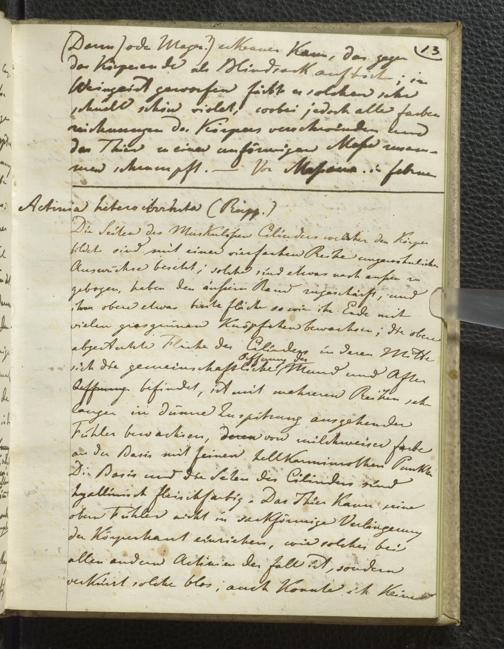 13
(Darm) oder Magen?) erkennen kann, das gegen
das Körperende als Blindsack aufhört; in
Weingeist geworfen färbt es solchen sehr
schnell schön violet, wobei jedoch alle Farben
zeichnungen des Körpers verschwinden und
das Thier zu einer unförmigen Masse zusam-
men schrumpft. — Von Messina in februar
Actinia heterocirrhita (Rüpp.)
Die Seiten des Muskulösen Cilinders welcher den Körper
bildet sind mit einer vierfachen Reihe ungewöhnlicher
Auswüchse besetzt; solche sind etwas nach außen zu
gebogen, haben den äußern Rand zugeschärft, und
ihre obere etwas breite fläche so wie ihr Ende mit
vielen grasgrünen Knöpfchen bewachsen; die obere
abgestutzte Fläche des Cilinders in deren Mitte
sich die gemeinschaftliche Öffnung des Mund und After
befindet, ist mit mehreren Reihen sehr
langer in dünne Zuspitzung ausgehender
Fühler bewachsen, von milchweiser farbe
an der Basis mit feinen hellkarminrothen Punkten
Die Basis und die Seiten des Cilinders sind
hyallinisch fleischfarbig. Das Thier kann seine
obern Fühler nicht in sackförmige Verlängerung
der Körperhaut einziehen, wie solches bei
allen andern Actinien der fall ist, sondern
verkürzt solche blos; auch konnte ich keine